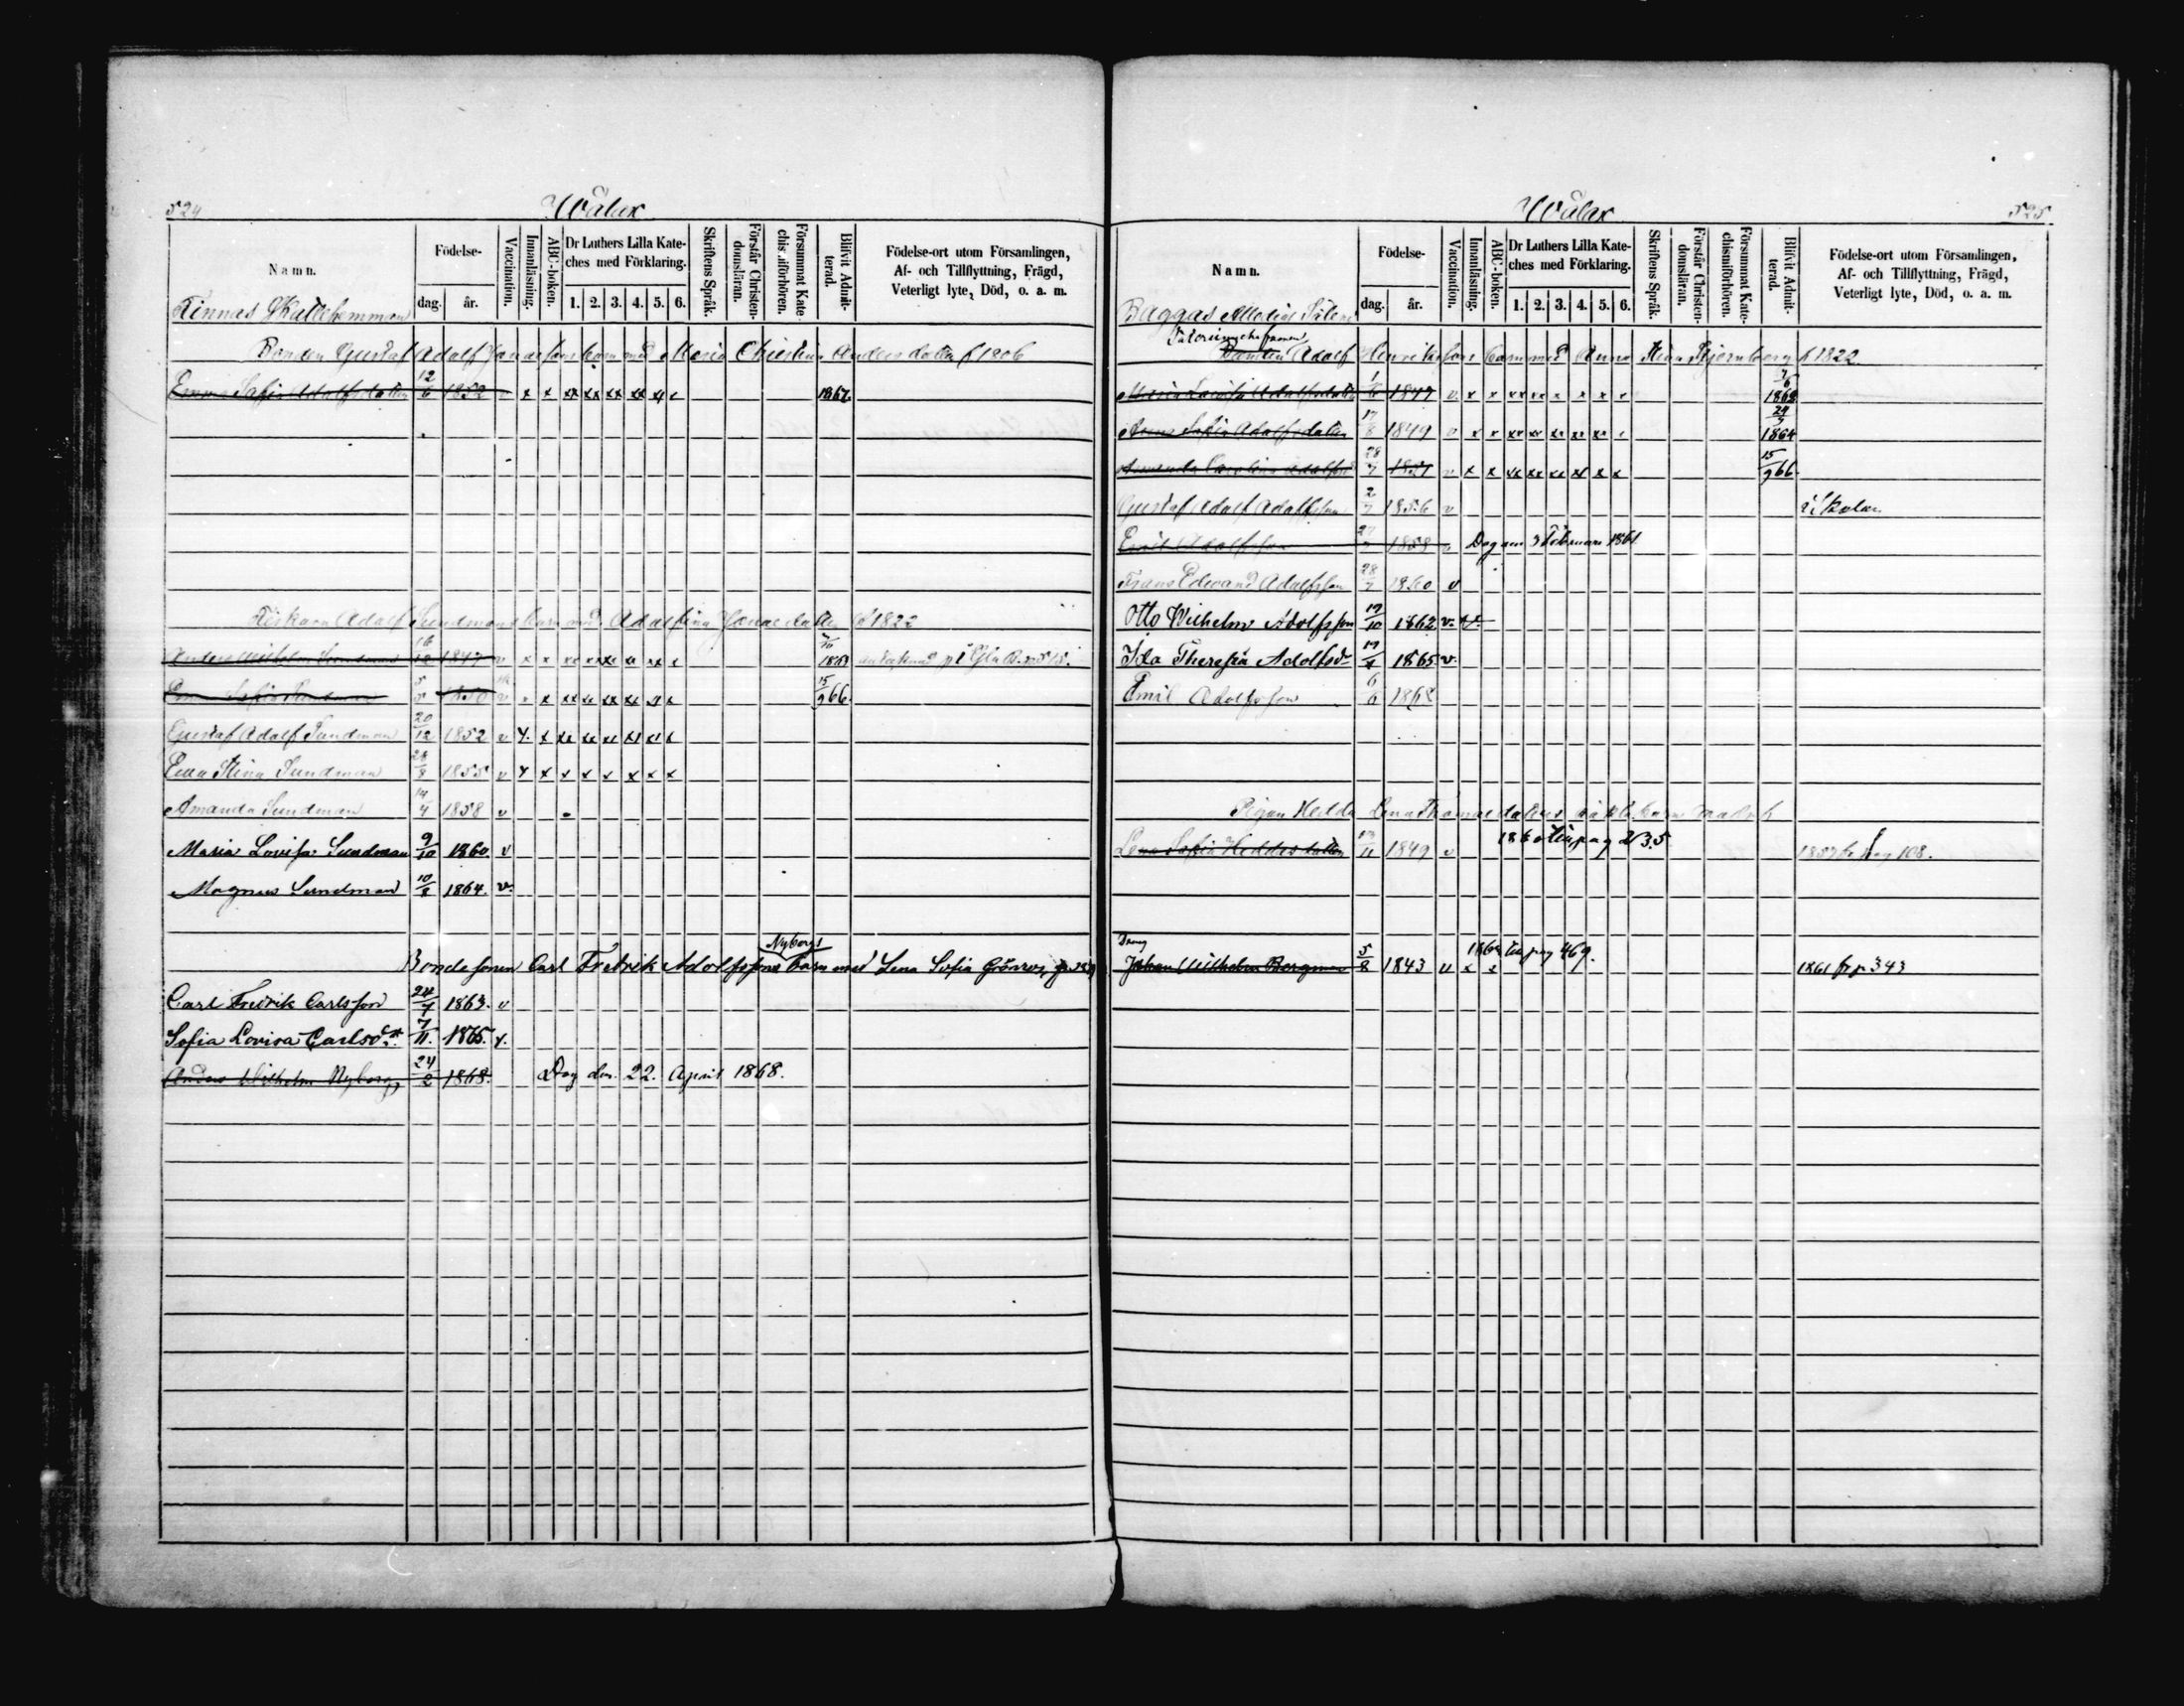 524
Wålax
Namn.
Födelse-
dag.
år.
Vaccination.
Innanläsning.
ABC-boken.
Dr Luthers Lilla Kate-
ches med Förklaring.
1. 2. 3. 4. 5. 6.
Skriftens Språk.
Förstår Christen-
domsläran.
Försummat Kate
chismiförhören.
Blifvit Admit-
terad.
Födelse-ort utom Församlingen,
Af- och Tillflyttning, Frägd,
Veterligt lyte, Död, o. a. m.
Finnas Skattehemman
Bonden Gustaf Adolf barn med Maria Christina Andersdotter f 1806
Emma Sofia Adolfsdotter 12/6 1852 v x x xx xx xx xx x x 1867
Fiskarn Adolf Sundmans barn med Adolfina Jonaedotter f 1822
Anders Wilhelm Sundman 16/12 1847 v x x xx xxx xx xx x 1863
Sofia Sundman 5/5 1850 v x x xx xx xx xx x x 15/9 66.
Gustaf Adolf Sundman 20/12 1852 v x x xx xx xx xx x x
Eva Stina Sundman 26/8 1855 v x x x x x x x x
Amanda Sundman 14/4 1858 v
Maria Lovisa Sundman 9/10 1860 v
Magnus Sundman 10/8 1864. v
Nybergs
Bondesonen Carl Fredrik Adolfssons barn med Lena Sofia Grönroos
Carl Fredrik Carlsson 24/7 1863. v
Sofia Lovisa Carlsdr. 7/11. 1865. v.
Anders Wilhelm Nyberg 24/2 1868. Dog den 22. April 1868.
525
Wålax
Namn.
Födelse-
dag.
år.
Vaccination.
Innanläsning.
ABC-boken.
Dr Luthers Lilla Kate-
ches med Förklaring.
1. 2. 3. 4. 5. 6.
Skriftens Språk.
Förstår Christen-
domsläran.
Försummat Kate-
chismiförhören.
Blifvit Admit-
terad.
Födelse-ort utom Församlingen,
Af- och Tillflyttning, Frägd,
Veterligt lyte, Död, o. a. m.
Baggas
Adolf Henrikssons barn med Anna Stina Stjernberg f 1822
Maria Lovisa Adolfsdotter 1/6 1847 v x x xx xx x x x x 7/6 1862
Anna Sofia Adolfsdotter 17/8 1849 v x x xx xx xx xx xx x 1864
Amanda Carolina Adolfsd 28/7 1851 v x x xx xx xx xx x x 15/9 66.
Gustaf Adolf Adolfsson 2/7 1856 v i Skolan
Emil Adolfsson 27 1858 v Dog den 3 Februari 1861
Frans Edvard Adolfsson 28/7 1860 v
Otto Wilhelm Adolfsson 19/10 1862 v.
Ida Theresia Adolfsdr 17/4 1865 v.
Emil Adolfsson 6/6 1868
Pigan Hedda Lena Thomaedotters oäkta barn
Lena Sofia Heddasdotter 13/11 1849 v 1860 till pag 235 1857 fr pag 108.
Dreng
Johan Wilhelm Bergman 5/8 1843 v x x till pag 469. 1861 fr p 343